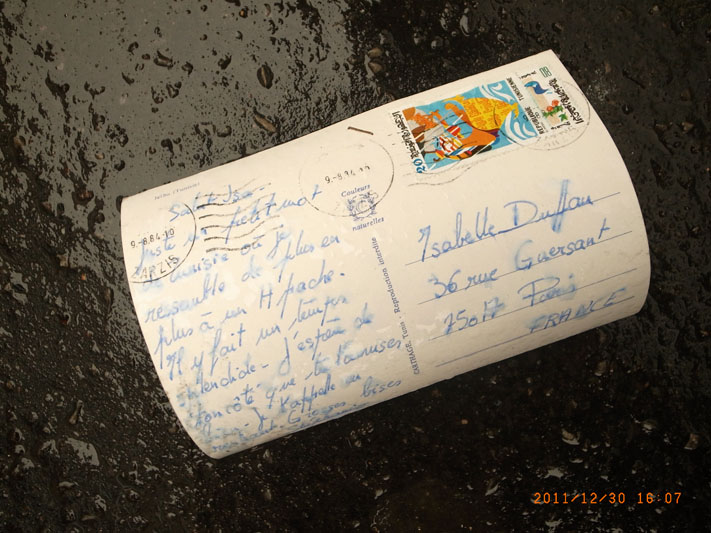 Salut Isa-
juste un petit mot
de Tunisie où je
ressemble de plus en
plus à un Apache.
Il y fait un temps
splendide - J'espère de
ton côté que tu t'amuses
bien - Je t'appelle en
Grosses bises
9.-8.84-19
ARZIS
9.-8.84-19
Couleurs
naturelles
CARTHAGE, Tunis - Reproduction interdite
20
REPUBLIQUE TUNISIENNE
80
Isabelle Duflau
36 rue Guersant
75017 Paris
FRANCE
2011/12/30 16:07